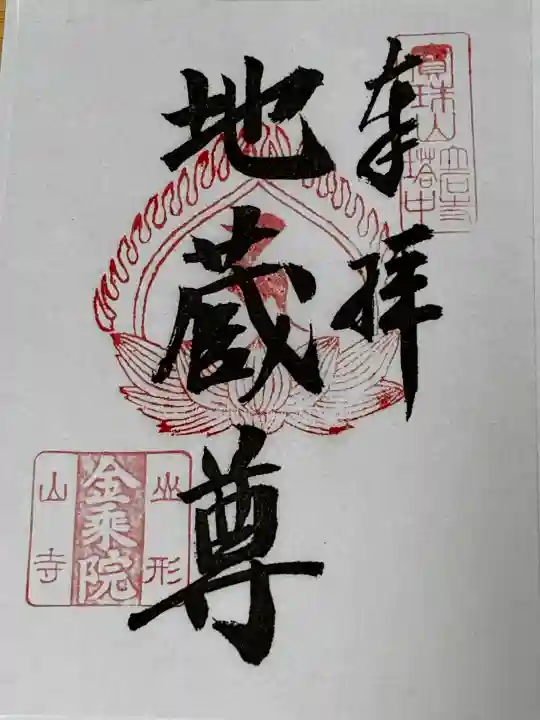 奉拝
寳珠山
立石寺
塔中
地蔵尊
山形
金乗院
山寺